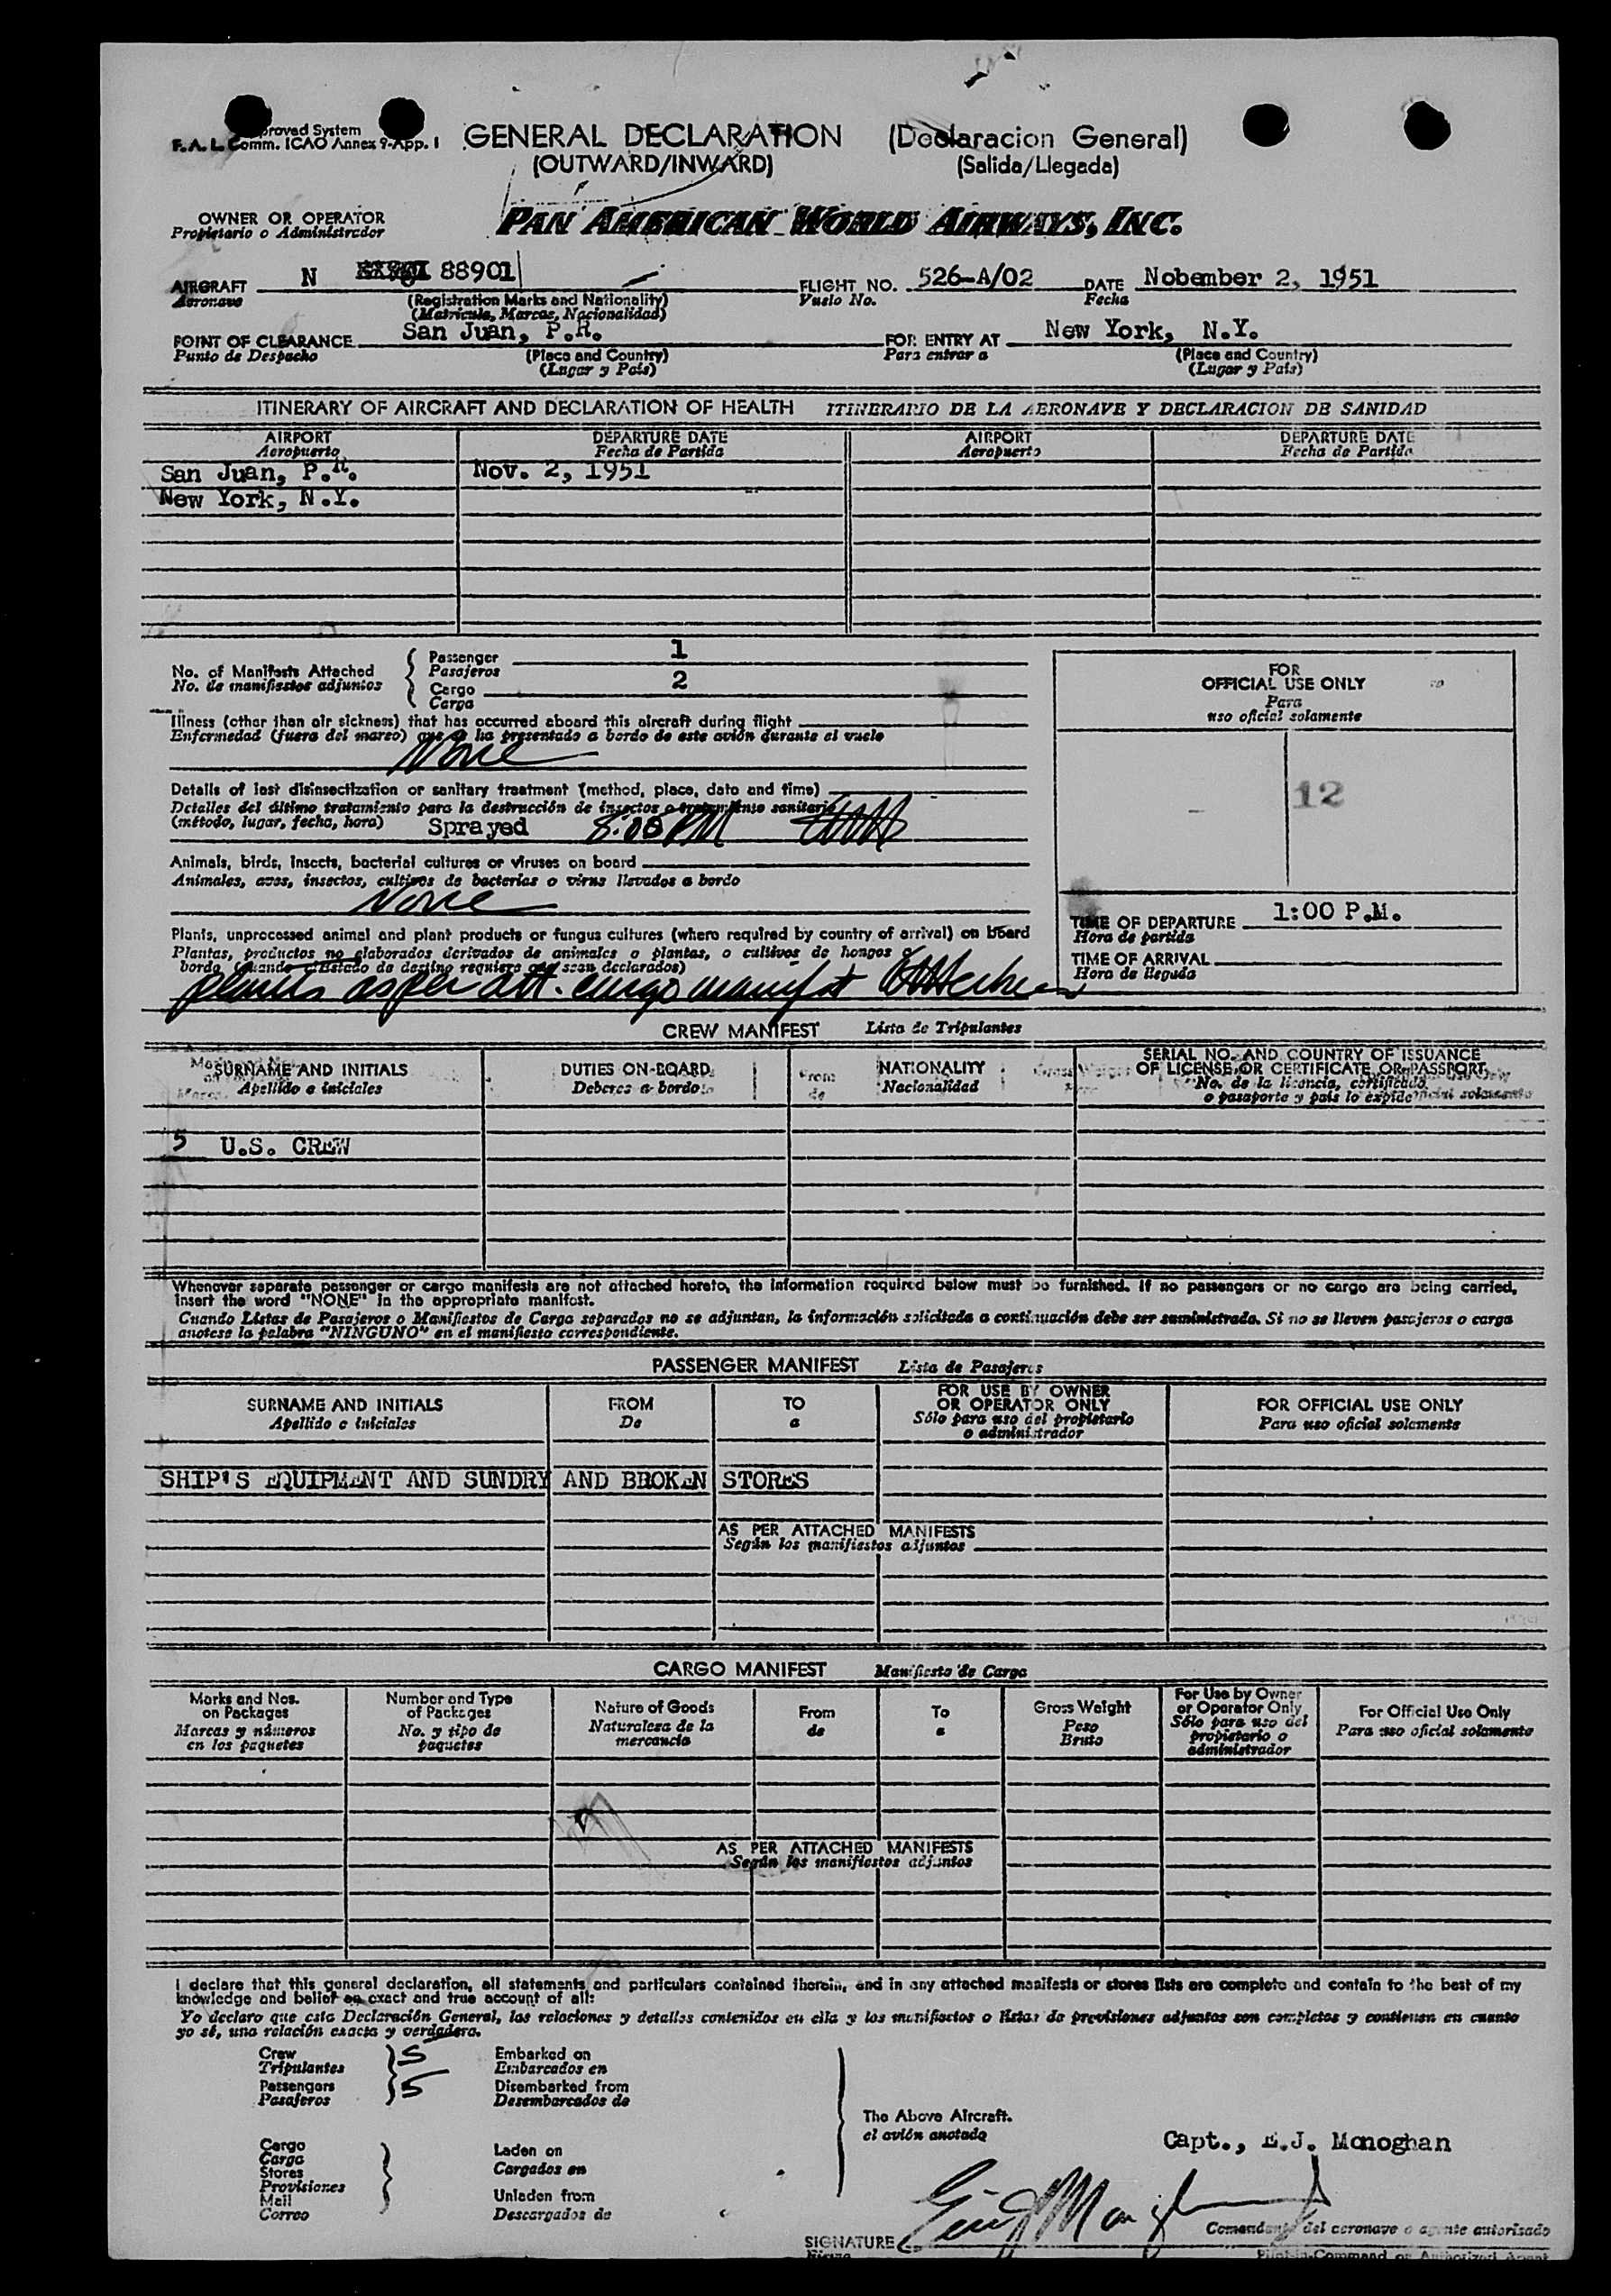 proved System
F. A. L. Comm. ICAO Annex 9-App. 1
GENERAL DECLARATION (Declaracion General)
(OUTWARD/INWARD) (Salida/Llegada)
OWNER OR OPERATOR
Propietario o Administrador
PAN AMERICAN WORLD AIRWAYS, INC.
AIRCRAFT N 88901 FLIGHT NO. 526-A/02 DATE Nobember 2, 1951
Aeronave (Registration Marks and Nationality) Vuelo No. Fecha
(Matricula, Marcas, Nacionalidad)
POINT OF CLEARANCE San Juan, P.R. FOR ENTRY AT New York, N.Y.
Punto de Despacho (Place and Country) Para entrar a (Place and Country)
(Lugar y País) (Lugar y País)
ITINERARY OF AIRCRAFT AND DECLARATION OF HEALTH ITINERARIO DE LA AERONAVE Y DECLARACION DE SANIDAD
AIRPORT DEPARTURE DATE AIRPORT DEPARTURE DATE
Aeropuerto Fecha de Partida Aeropuerto Fecha de Partida
San Juan, P.R. Nov. 2, 1951
New York, N.Y.
No. of Manifests Attached
No. de manifiestos adjuntos
Passenger 1
Pasajeros
Cargo 2
Carga
FOR
OFFICIAL USE ONLY
Para
uso oficial solamente
12
Illness (other than air sickness) that has occurred aboard this aircraft during flight
Enfermedad (fuera del mareo) que se ha presentado a bordo de este avión durante el vuelo
None
Details of last disinsectization or sanitary treatment (method, place, date and time)
Detalles del último tratamiento para la destrucción de insectos o tratamiento sanitario
(método, lugar, fecha, hora) Sprayed PM
Animals, birds, insects, bacterial cultures or viruses on board
Animales, aves, insectos, cultivos de bacterias o virus llevados a bordo
None
TIME OF DEPARTURE 1:00 P.M.
Hora de partida
TIME OF ARRIVAL
Hora de llegada
Plants, unprocessed animal and plant products or fungus cultures (where required by country of arrival) on board
Plantas, productos no elaborados derivados de animales o plantas, o cultivos de hongos a
bordo (cuando el Estado de destino requiere que sean declarados)
plants as per att. cargo manifest
CREW MANIFEST Lista de Tripulantes
SURNAME AND INITIALS DUTIES ON BOARD NATIONALITY SERIAL NO. AND COUNTRY OF ISSUANCE
OF LICENSE OR CERTIFICATE OR PASSPORT
Apellido e iniciales Deberes a bordo Nacionalidad No. de la licencia, certificado
o pasaporte y país lo expide
5 U.S. CREW
Whenever separate passenger or cargo manifests are not attached hereto, the information required below must be furnished. If no passengers or no cargo are being carried,
insert the word "NONE" in the appropriate manifest.
Cuando Listas de Pasajeros o Manifiestos de Carga separados no se adjuntan, la información solicitada a continuación debe ser suministrada. Si no se lleven pasajeros o carga
anotese la palabra "NINGUNO" en el manifiesto correspondiente.
PASSENGER MANIFEST Lista de Pasajeros
SURNAME AND INITIALS FROM TO FOR USE BY OWNER
OR OPERATOR ONLY FOR OFFICIAL USE ONLY
Apellido e iniciales De a Sólo para uso del propietario
o administrador Para uso oficial solamente
SHIP'S EQUIPMENT AND SUNDRY AND BROKEN STORES
AS PER ATTACHED MANIFESTS
Según los manifiestos adjuntos
CARGO MANIFEST Manifiesto de Carga
Marks and Nos.
on Packages
Marcas y números
en los paquetes
Number and Type
of Packages
No. y tipo de
paquetes
Nature of Goods
Naturaleza de la
mercancia
From
de
To
a
Gross Weight
Peso
Bruto
For Use by Owner
or Operator Only
Sólo para uso del
propietario o
administrador
For Official Use Only
Para uso oficial solamente
AS PER ATTACHED MANIFESTS
Según los manifiestos adjuntos
I declare that this general declaration, all statements and particulars contained therein, and in any attached manifests or stores lists are complete and contain to the best of my
knowledge and belief an exact and true account of all:
Yo declaro que esta Declaración General, las relaciones y detalles contenidos en ella y los manifiestos o listas de provisiones adjuntos son completos y contienen en cuanto
yo sé, una relación exacta y verdadera.
Crew 5 Embarked on
Tripulantes Embarcados en
Passengers 5 Disembarked from
Pasajeros Desembarcados de
The Above Aircraft.
el avión anotado
Capt., E.J. Monoghan
Cargo
Carga
Stores
Provisiones
Mail
Correo
Laden on
Cargados en
Unladen from
Descargados de
SIGNATURE
Comandante del aeronave o agente autorisado
Pilot-in-Command or Authorized Agent